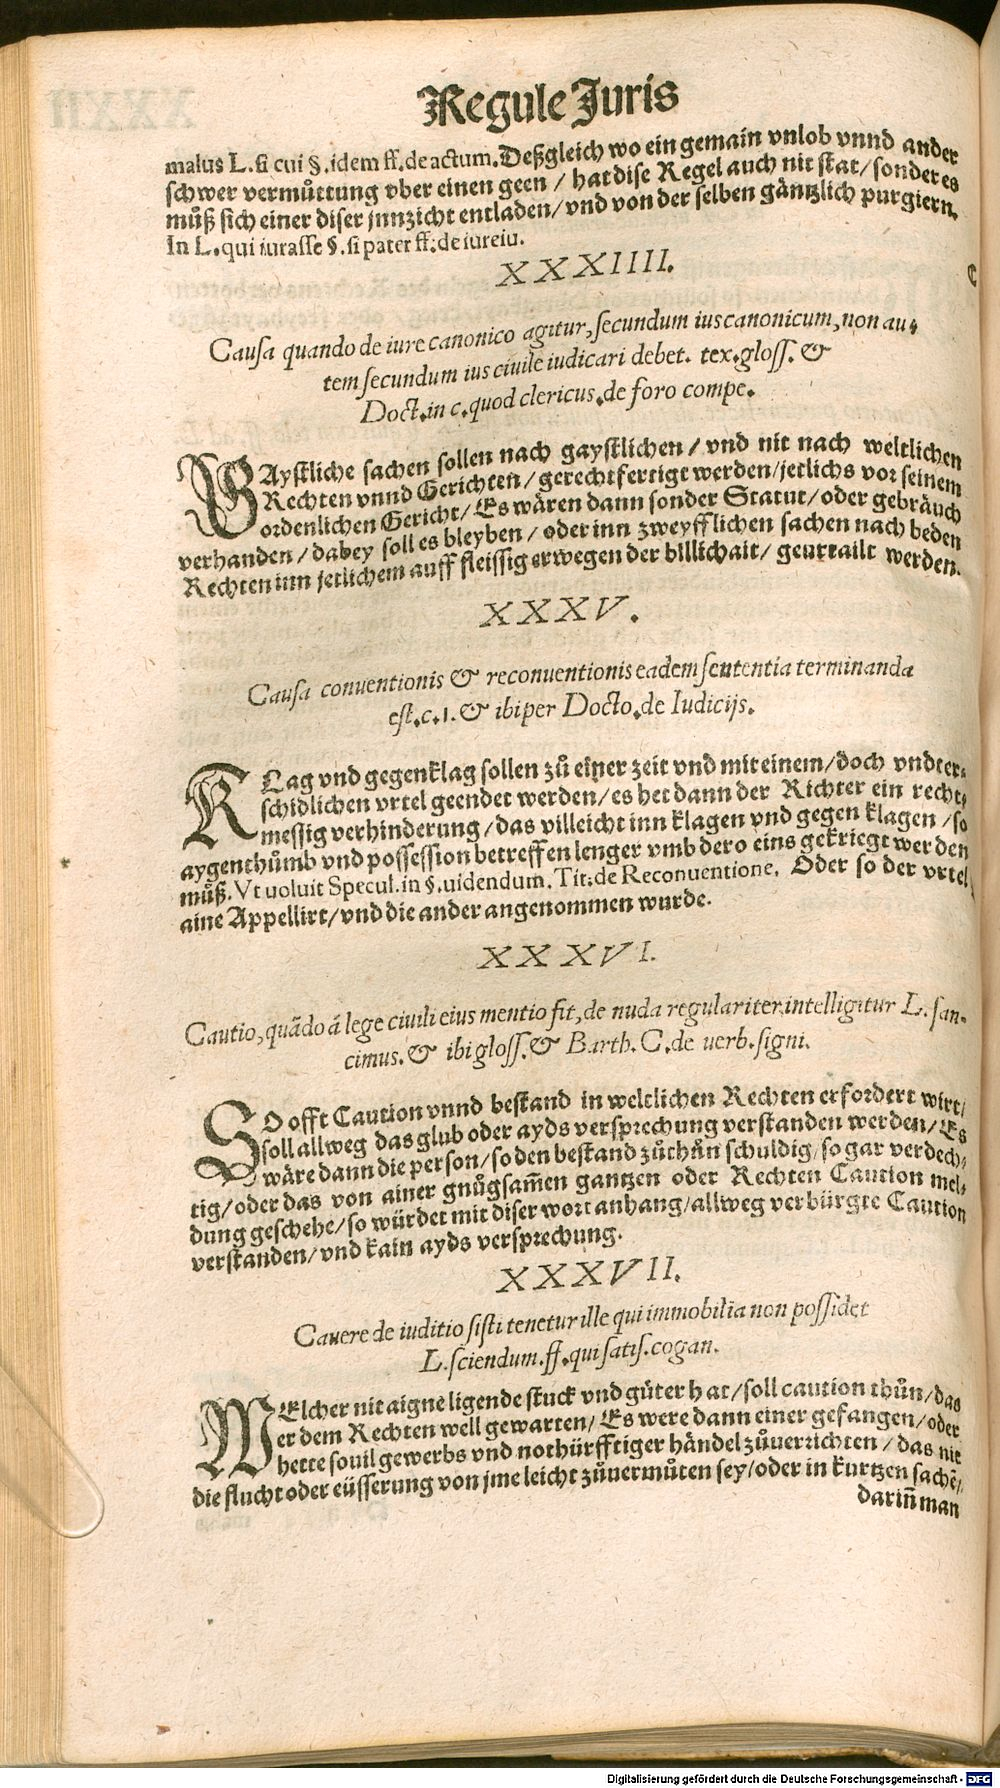 Regule Juris
malus L. si cui §. idem ff. de actum. Deßgleich wo ein gemain vnlob vnnd ander
schwer vermůttung vber einen geen / hat dise Regel auch nit stat / sonder es
můß sich einer diser jnnzicht entladen / vnd von der selben gäntzlich purgiern.
In L. qui iurasse §. si pater ff. de iureiu.
XXXIIII.
Causa quando de iure canonico agitur, secundum ius canonicum, non au-
tem secundum ius ciuile iudicari debet. tex. gloss. &
Doct. in c. quod clericus. de foro compe.
GAystliche sachen sollen nach gaystlichen / vnd nit nach weltlichen
Rechten vnnd Gerichten / gerechtfertigt werden / jetlichs vor seinem
ordenlichen Gericht / Es wären dann sonder Statut / oder gebräuch
verhanden / dabey soll es bleyben / oder inn zweyfflichen sachen nach beden
Rechten inn jetlichem auff fleissig erwegen der billichait / geurtailt werden.
XXXV.
Causa conuentionis & reconuentionis eadem sententia terminanda
est. c. 1. & ibi per Docto. de Iudicijs.
KLag vnd gegenklag sollen zů einer zeit vnd mit einem / doch vndter-
schidlichen vrtel geendet werden / es het dann der Richter ein recht-
messig verhinderung / das villeicht inn klagen vnd gegen klagen / so
aygenthůmb vnd possession betreffen lenger vmb dero eins gekriegt werden
můß. Vt uoluit Specul. in §. uidendum. Tit: de Reconuentione. Oder so der vrtel
aine Appellirt / vnd die ander angenommen wurde.
XXXVI.
Cautio, quãdo á lege ciuili eius mentio fit, de nuda regulariter intelligitur L. san-
cimus. & ibi gloss. & Barth. C. de uerb. signi.
SO offt Caution vnnd bestand in weltlichen Rechten erfordert wirt /
soll allweg das glub oder ayds versprechung verstanden werden / Es
wäre dann die person / so den bestand zůthůn schuldig / so gar verdech-
tig / oder das von ainer gnůgsam̃en gantzen oder Rechten Caution mel-
dung geschehe / so würdet mit diser wort anhang / allweg verbürgte Caution
verstanden / vnd kain ayds versprechung.
XXXVII.
Cauere de iuditio sisti tenetur ille qui immobilia non possidet
L. sciendum. ff. qui satis. cogan.
WElcher nit aigne ligende stuck vnd gůter hat / soll caution thůn / das
er dem Rechten well gewarten / Es were dann einer gefangen / oder
hette souil gewerbs vnd nothürfftiger händel zůuerrichten / das nit
die flucht oder eüsserung von jme leicht zůuermůten sey / oder in kurtzen sachẽ /
darin̄ man
Digitalisierung gefördert durch die Deutsche Forschungsgemeinschaft - DFG